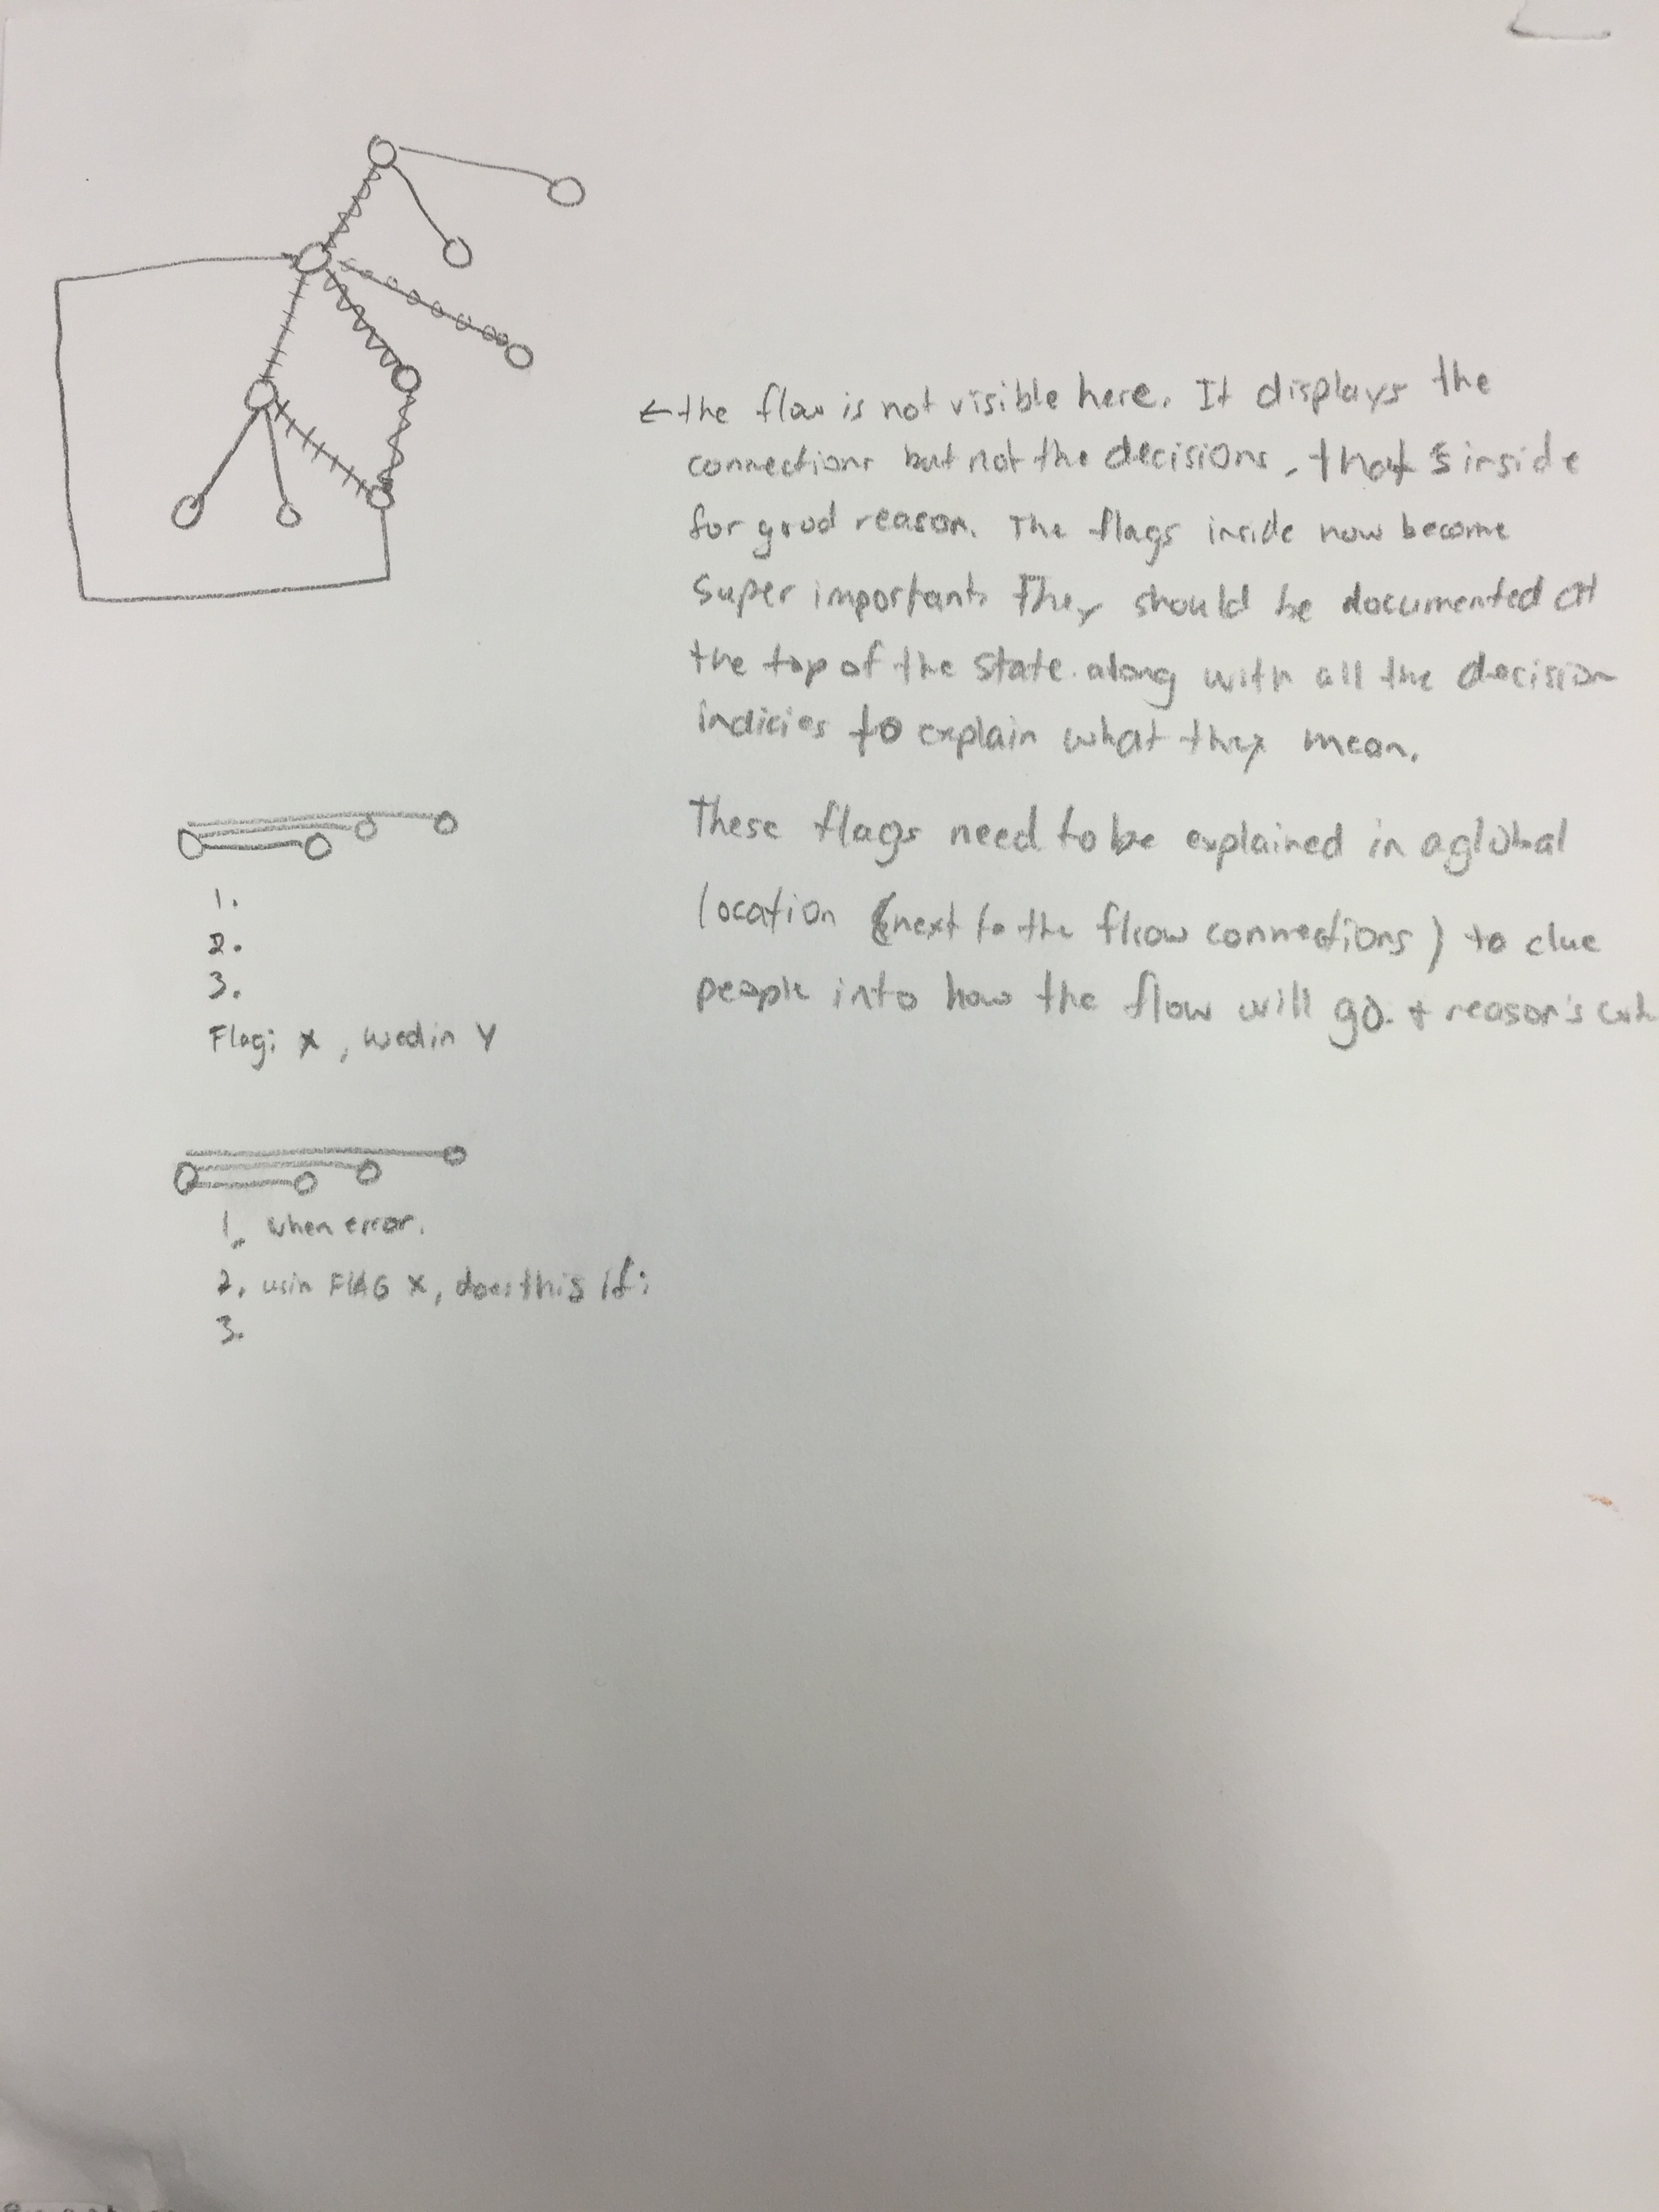 ← the flow is not visible here. It displays the
connections but not the decisions, that's inside
for good reason. The flags inside now become
super important. They should be documented at
the top of the state. along with all the decision
indicies to explain what they mean.
1.
2.
3.
Flag: X, used in Y
These flags need to be explained in a global
location (next to the flow connections) to clue
people into how the flow will go. + reason's
1. when error.
2. usin FLAG X, does this if:
3.